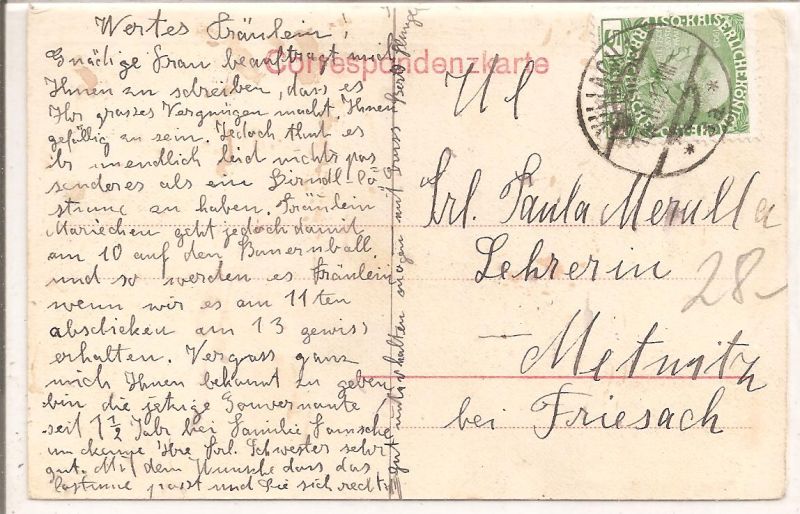 Wertes Fräulein!
Gnädige Frau beauftragt mich
Ihnen zu schreiben, dass es
Ihr grosses Vergnügen macht, Ihnen
gefällig zu sein. Jedoch thut es
ihr unendlich leid nichts pas
senderes als ein Dirndl-Co
stume zu haben. Fräulein
Mariechen geht jedoch damit
am 10 auf den Bauernball
und so werden es Fräulein
wenn wir es am 11ten
abschicken am 13 gewiss
erhalten. Vergass ganz
mich Ihnen bekannt zu geben
bin die jetzige Gouvernante
seit 1 1/2 Jahr bei Familie
u kenne Ihre Frl. Schwester sehr
gut. Mit dem Wunsche dass das
Costume passt und Sie sich recht
gut unterhalten mögen mit Gruss
Correspondenzkarte
Frl. Paula Merulla
Lehrerin
Metnitz
bei Friesach
28-
VILLACH